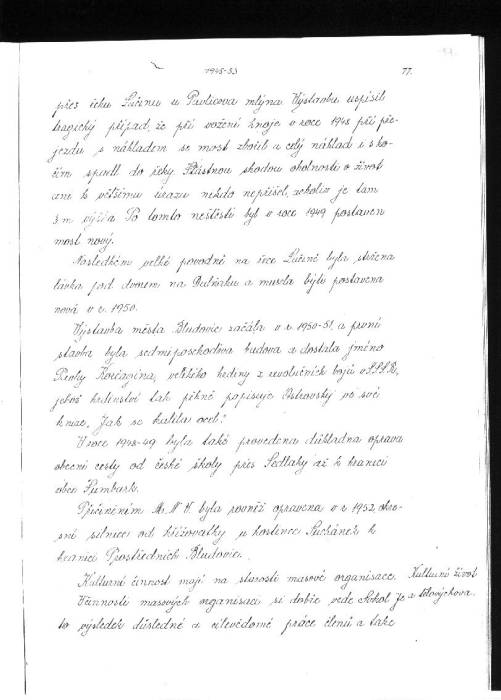 1945-53
77.
přes řeku Lučinu u Pavlicova mlýna. Výstavbu uspíšil
tragický případ, že při vožení hnoje v roce 1948 při pře-
jezdu s nákladem se most zbořil a celý náklad i s ko-
čím spadl do řeky. Šťastnou shodou okolností o život
ani k většímu úrazu nikdo nepřišel, ačkoliv je tam
3 m výšla. Po tomto neštěstí byl v roce 1949 postaven
most nový.
Následkem velké povodně na řece Lučině byla stržena
lávka pod dvorem na a musela býti postavena
nová v r. 1950.
Výstavba města Bludovic začála v r. 1950-51, a první
stavba byla sedmiposchoďova budova a dostala jméno
Korčagina, velkého hrdiny z revolučních bojů v S.S.S.R.,
jehož hrdinství tak pěkně popisuje Ostrovský ve své
knize „Jak se kalila ocel."
V roce 1948-49 byla také provedena důkladna oprava
obecní cesty od české školy přes Sedlaky až k hranici
obce Šumbark.
Přičiněním M.N.V. byla rovněž opravena v r. 1952 okre-
sní silnice od křižovatky u hostince Suchánek k
hranici Prostředních Bludovic.
Kulturní činnost mají na starosti masové organisace.
Kulturní život
V činnosti masových organisací si dobře vede Sokol. Je
a tělovýchova.
to výsledek důsledné a cílevědomé práce členů a take